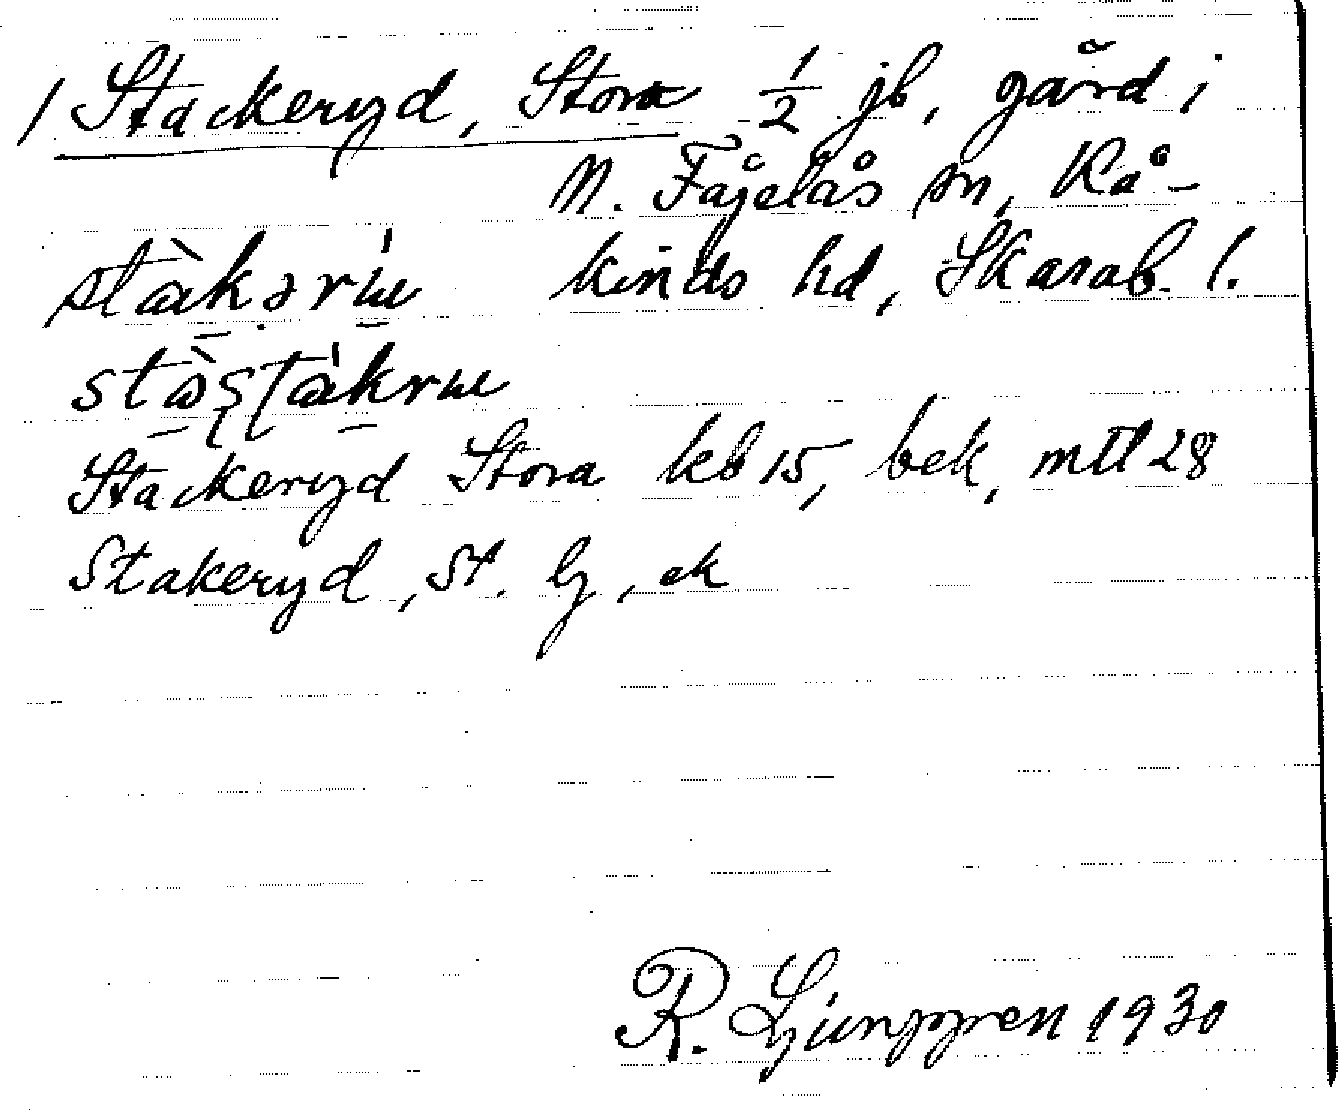 1 Stackeryd, Stora 1/2 jb, gård i
N. Fågelås sn, Kå-
kinds hd, Skarab. l.
Stackeryd Stora kb 15, bek, mtl 28
Stakeryd, St. lj, ek
R. Ljunggren 1930